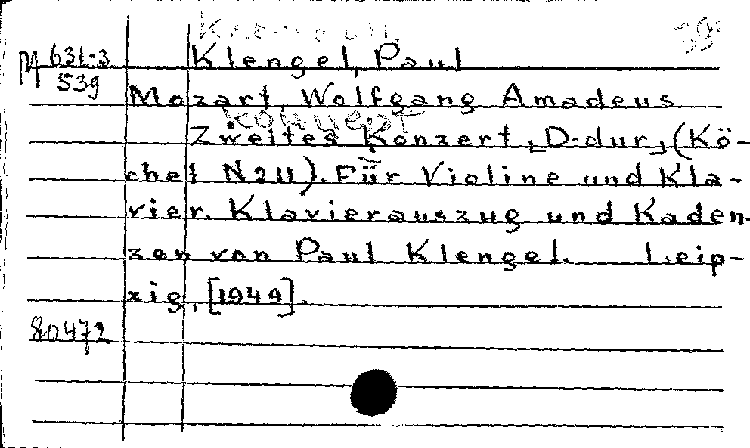 M 631-3
539
Klengel, Paul
Mozart, Wolfgang Amadeus
Konzert
Zweites Konzert, D-dur, (Kö-
chel N 211). Für Violine und Kla-
vier. Klavierauszug und Kaden-
zen von Paul Klengel. Leip-
zig, [1949].
80472